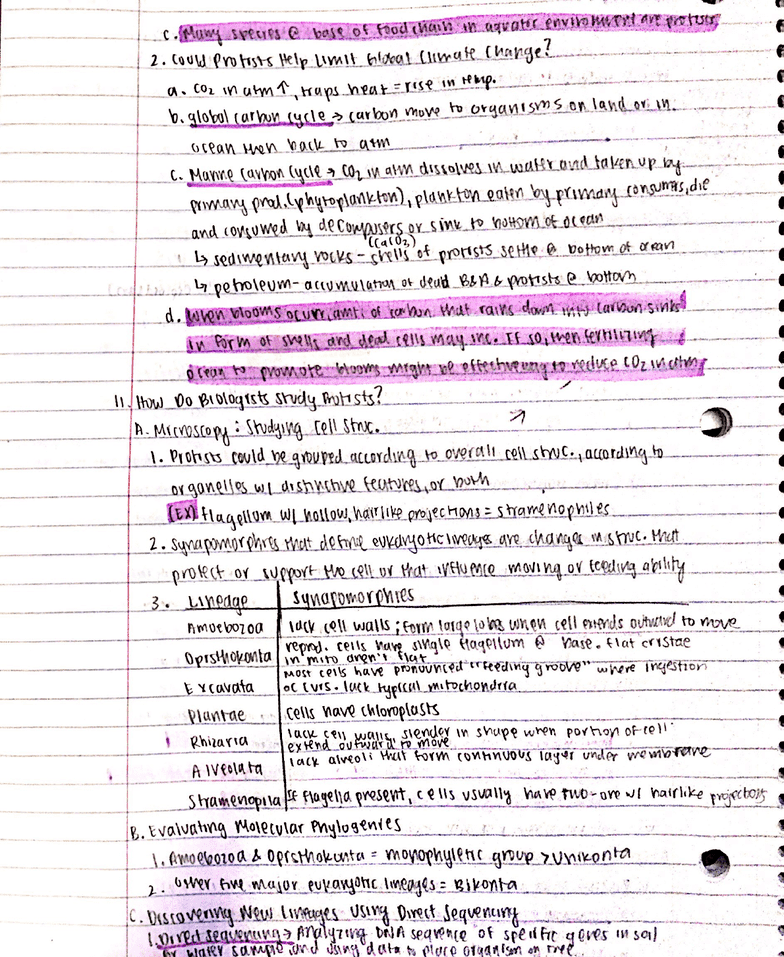 c. Many species @ base of food chain in aquatic environment are protists
2. Could Protists Help Limit Global Climate Change?
a. CO2 in atm ↑, traps heat = rise in temp.
b. global carbon cycle → carbon move to organisms on land or in
ocean then back to atm
c. Marine carbon cycle → CO2 in atm dissolves in water and taken up by
primary prod. (phytoplankton), plankton eaten by primary consumers, die
and consumed by decomposers or sink to bottom of ocean
(CaCO3)
↳ sedimentary rocks - shells of protists settle @ bottom of ocean
↳ petroleum - accumulation of dead B&A & protists @ bottom
d. When blooms occur, amt. of carbon that rains down into carbon sinks
in form of shells and dead cells may inc. If so, then fertilizing
ocean to promote blooms might be effective way to reduce CO2 in atm
11. How Do Biologists Study Protists?
A. Microscopy: Studying Cell Struc.
1. Protists could be grouped according to overall cell struc., according to
organelles w/ distinctive features, or both
(EX) flagellum w/ hollow, hairlike projections = stramenophiles
2. Synapomorphies that define eukaryotic lineages are changes in struc. that
protect or support the cell or that influence moving or feeding ability
3. Lineage | Synapomorphies
Amoebozoa | lack cell walls; form large lobes when cell extends outward to move
Opisthokonta | reprod. cells have single flagellum @ base. flat cristae
in mito aren't flat
Excavata | Most cells have pronounced "feeding groove" where ingestion
occurs. lack typical mitochondria
Plantae | cells have chloroplasts
Rhizaria | lack cell walls, slender in shape when portion of cell
extend outward to move
Alveolata | lack alveoli that form continuous layer under membrane
Stramenopila | If flagella present, cells usually have two-one w/ hairlike projections
B. Evaluating Molecular Phylogenies
1. Amoebozoa & Opisthokonta = monophyletic group > Unikonta
2. Other five major eukaryotic lineages = Bikonta
C. Discovering New Lineages Using Direct Sequencing
1. Direct sequencing → Analyzing DNA sequence of specific genes in soil
or water sample, and using data to place organism on tree